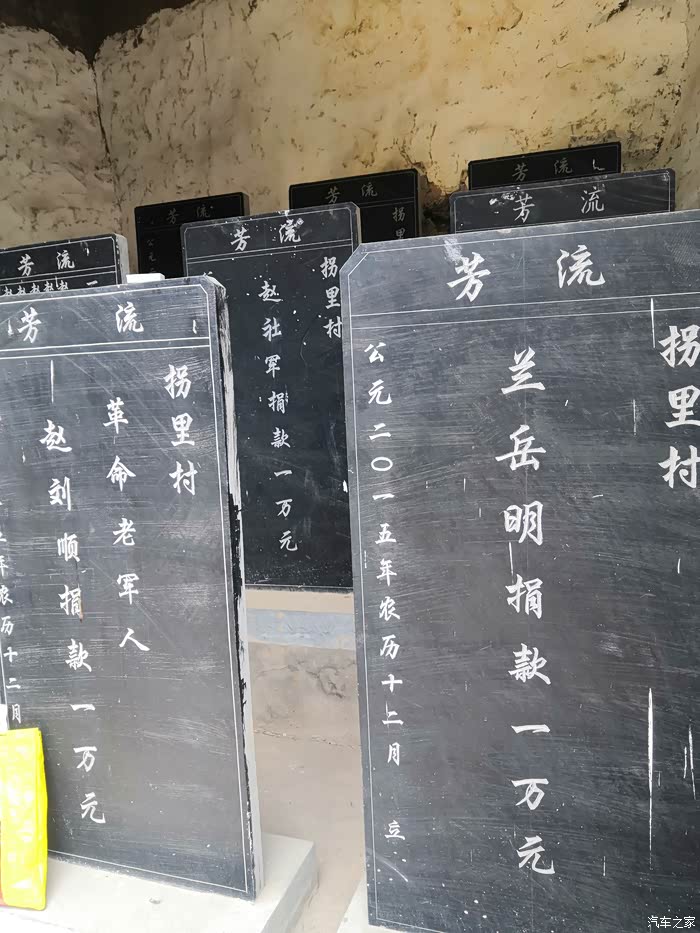 芳流
拐里村
兰岳明捐款一万元
公元二〇一五年农历十二月 立
芳流
拐里村
革命老军人
赵刘顺捐款一万元
年农历十二月
芳流
拐里村
赵社军捐款一万元
芳流
芳流
拐里
芳流
公元
芳流
芳流
汽车之家